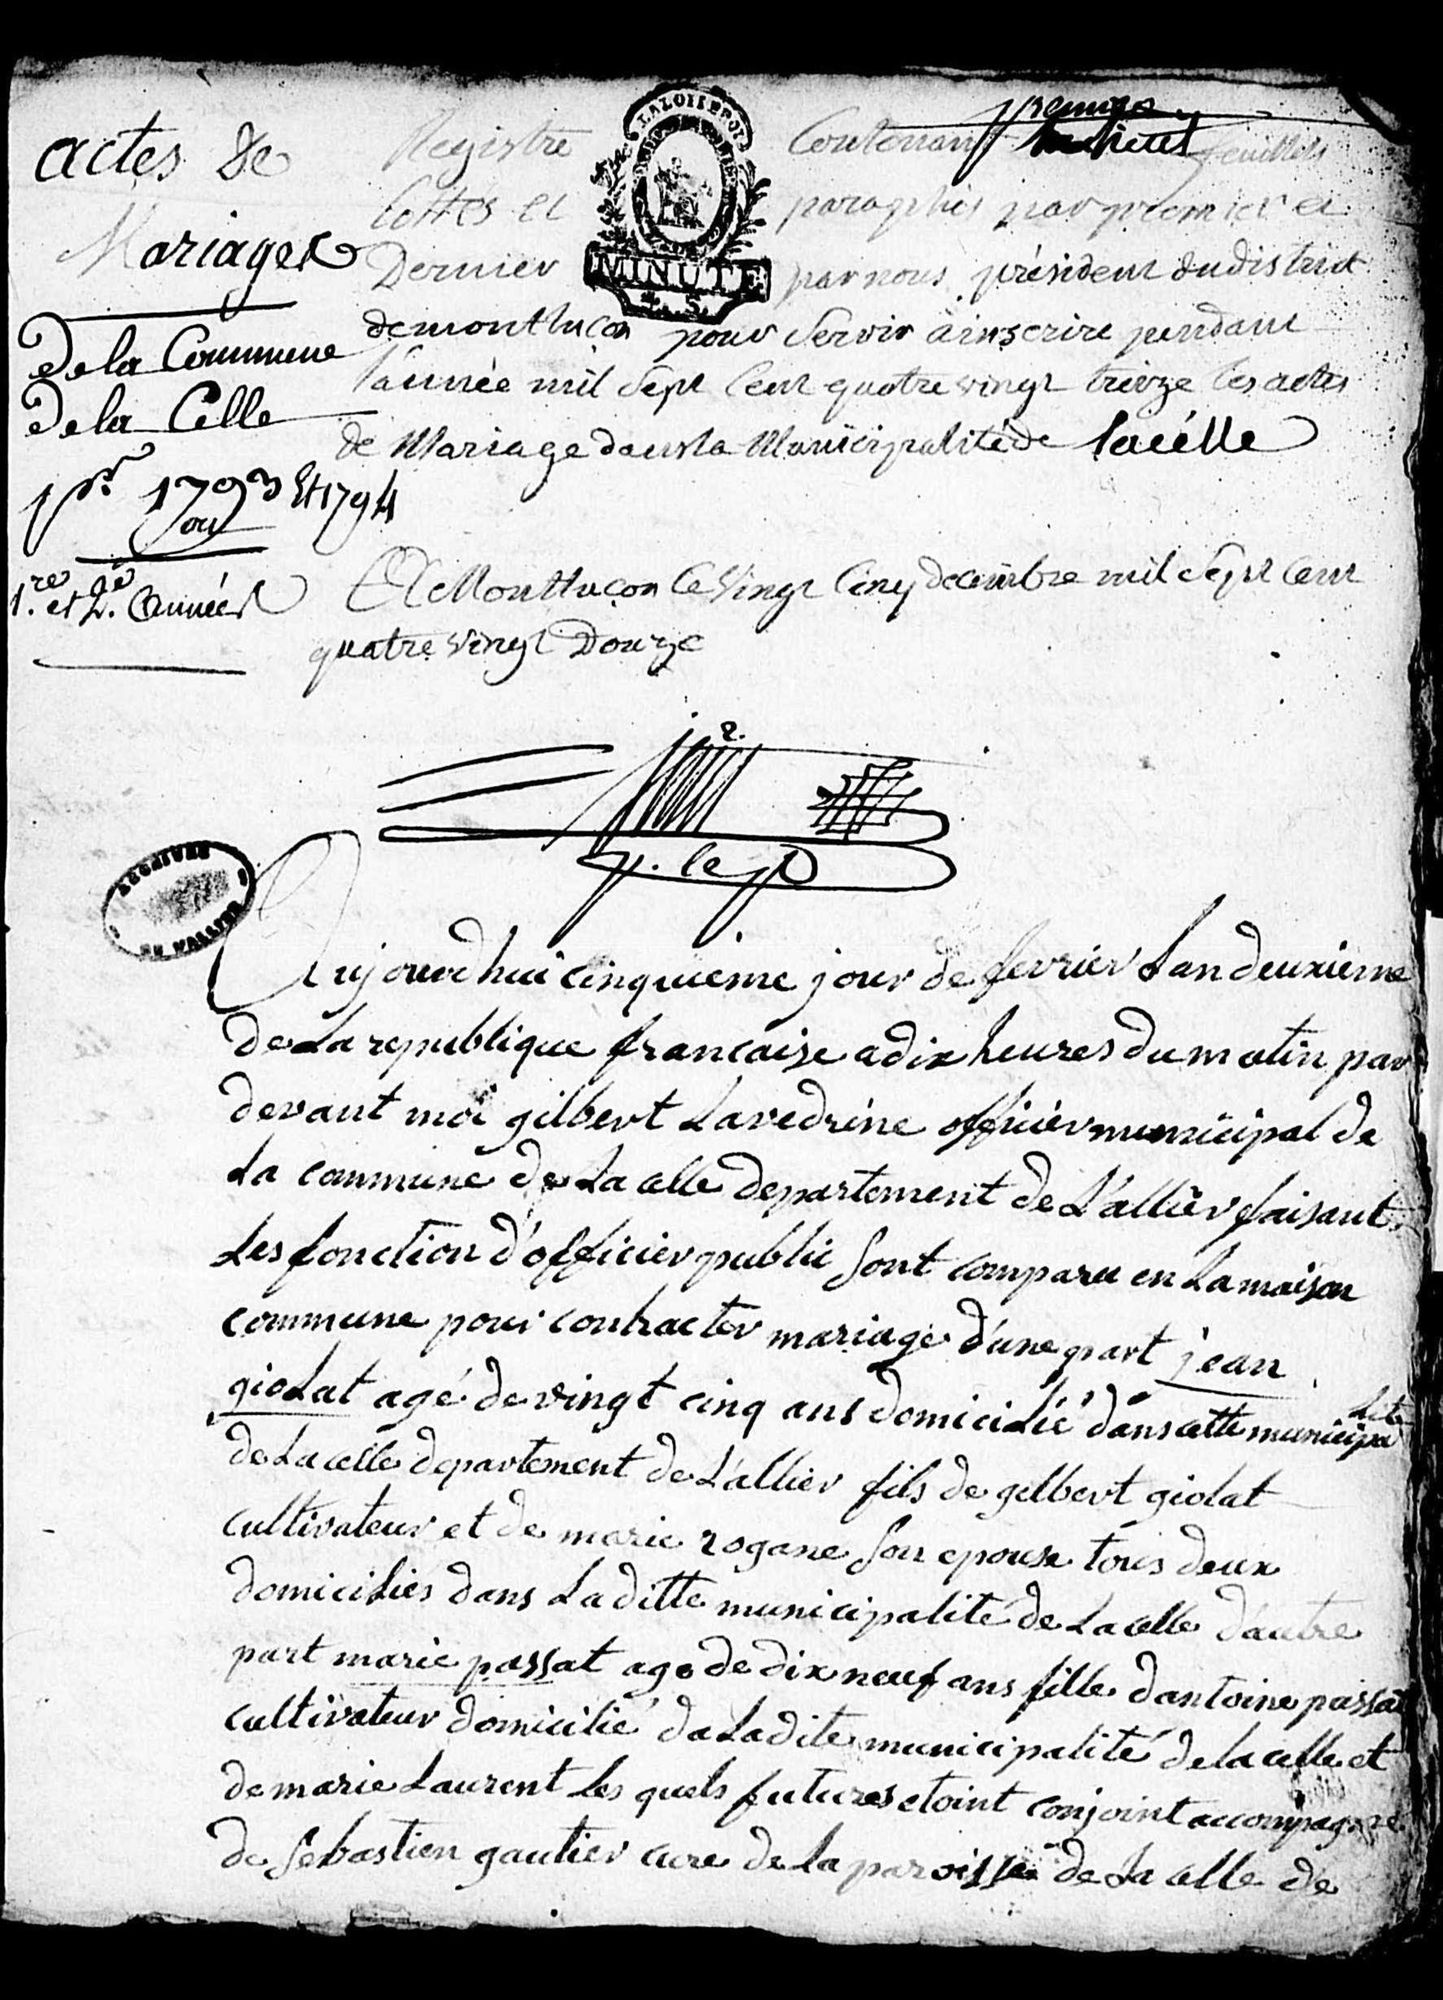 actes de
Mariages
de la Commune
de la Celle
pr. 1793 Et 1794
ou
1.re et 2.e années
premier
huit
LA LOI ET LE ROI
MINUTE
4. S.
Registre Contenant feuillets
Cottés et paraphés par premier et
Dernier par nous président du district
de montluçon pour Servir a inscrire pendant
l'année mil Sept Cent quatre vingt treize les actes
de Mariage dans la Municipalité de lacélle
A Montluçon Ce Vingt Cinq decembre mil Sept Cent
quatre vingt Douze
p. le p
ARCHIVES
DE L'ALLIER
Aujourdhui cinquieme jour de fevrier Lan deuxieme
de La republique francaise a dix heures du matin par
devant moi gilbert Lavedrine officier municipal de
La commune de La celle departement de L'allier faisant
Les fonction d'officier public Sont comparu en La maison
commune pour contracter mariage d'une part jean
giolat agé de vingt cinq ans domicilié dans cette municipa
lité
de La celle departement de L'allier fils de gilbert giolat
cultivateur et de marie rogane Son epouse tous deux
domiciliés dans La ditte municipalité de La celle d'autre
part marie passat age de dix neuf ans fille d'antoine passat
cultivateur domicilié da La dite municipalité de la celle et
de marie Laurent Les quels futures etoint conjoint accompagné
de Sebastien gautier cure de La paroisse de La celle de